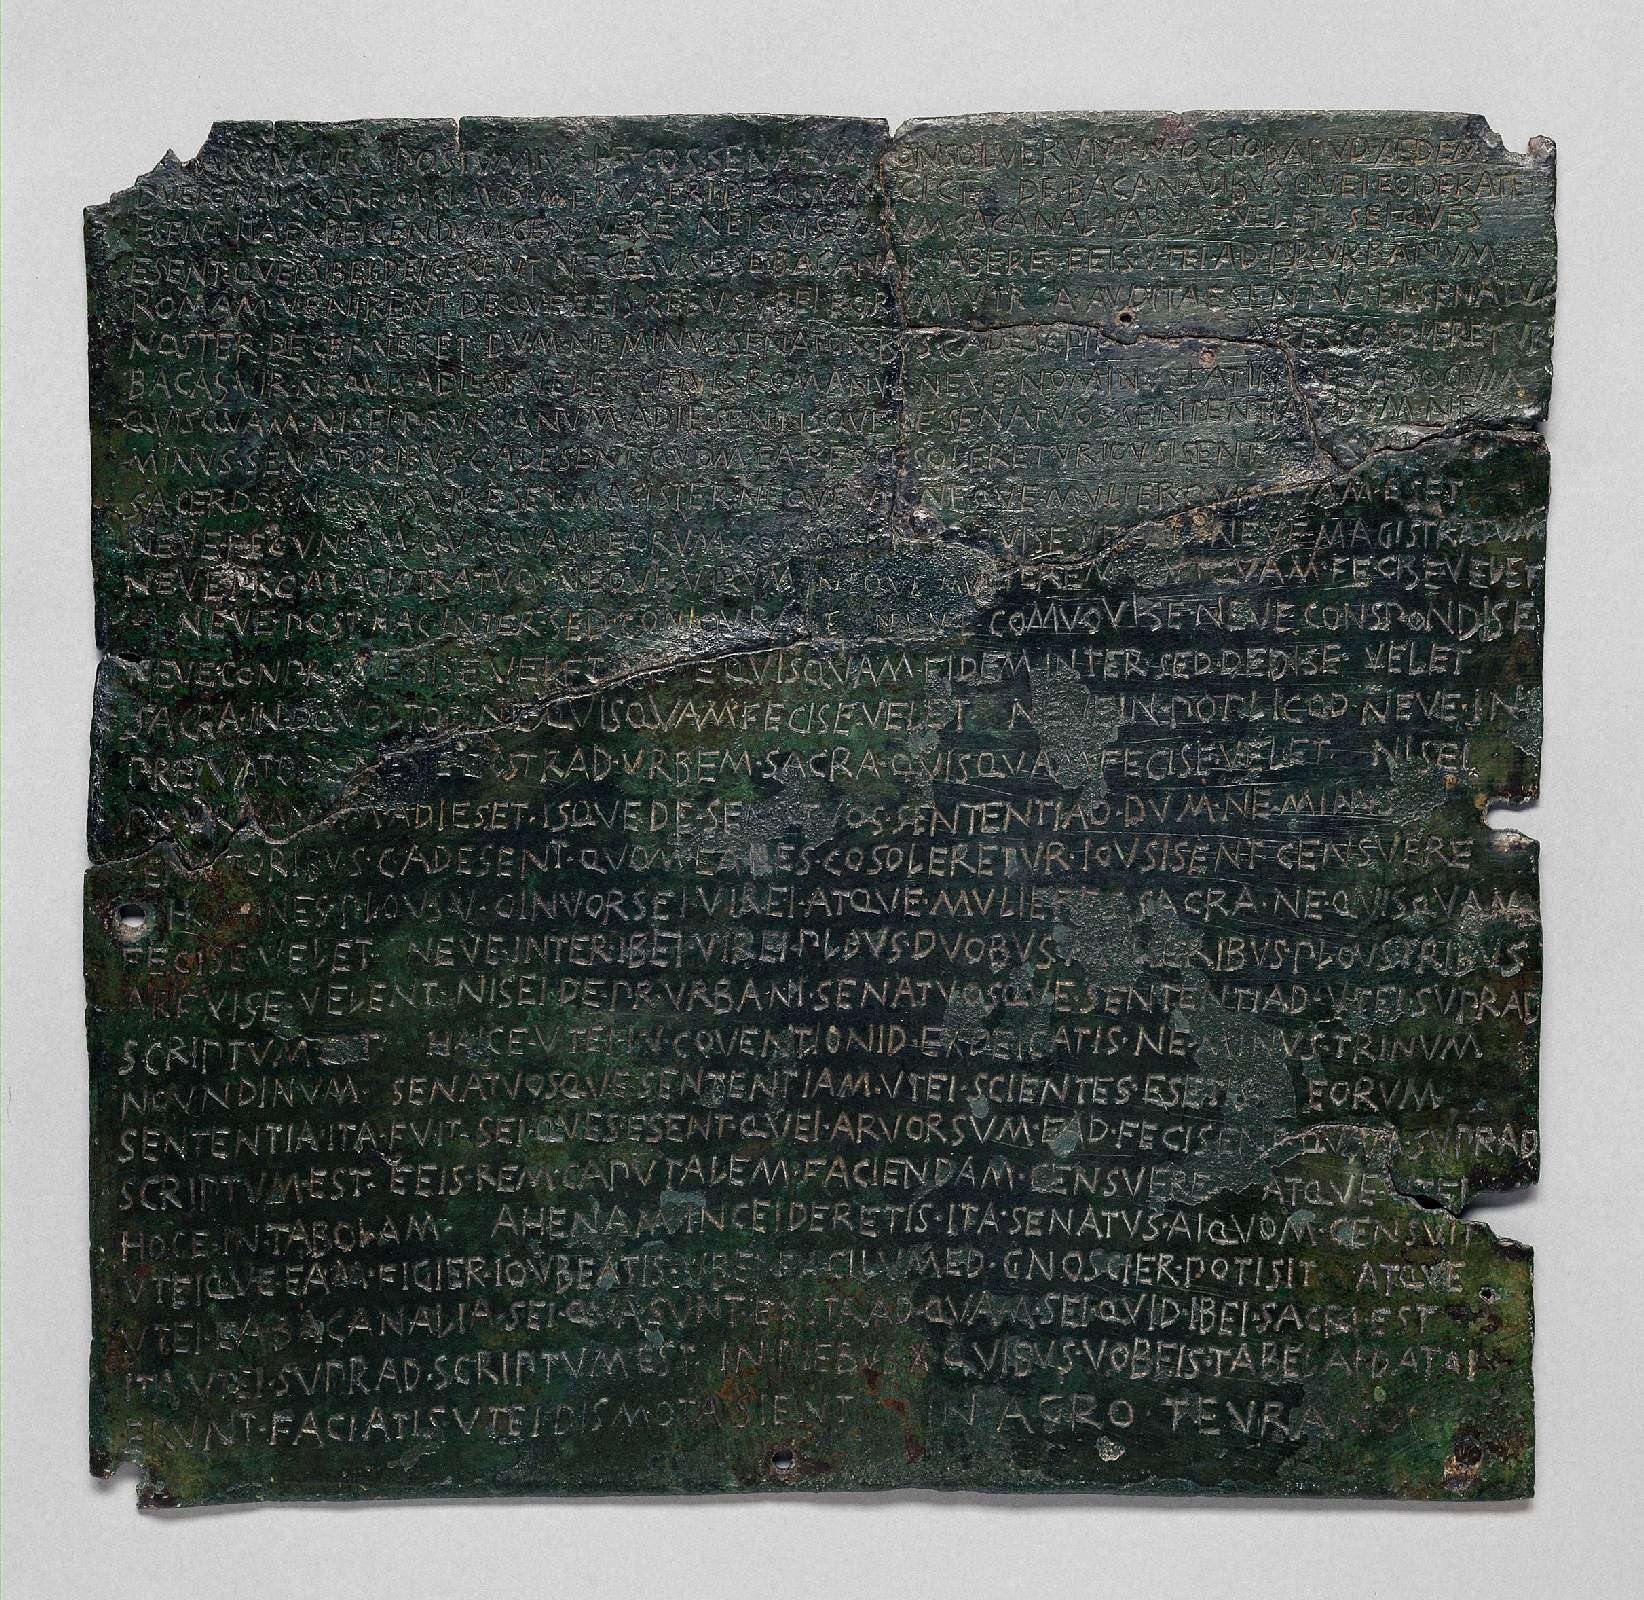 MARCIVS·L·F·S·POSTVMIVS·L·F·COS·SENATVM·CONSOLVERVNT·N·OCTOB·APVD·AEDEM
DVELONAI·SC·ARF·M·CLAVDI·M·F·L·VALERI·P·F·Q·MINVCI·C·F· DE·BACANALIBVS·QVEI·FOIDERATEI
ESENT·ITA·EXDEICENDVM·CENSVERE NEIQVIS·EORVM·SACANAL·HABVISE·VELET SEI·QVES
ESENT·QVEI·SIBEI·DEICERENT·NECESVS·ESE·BACANAL·HABERE·EEIS·VTEI·AD·PR·VRBANVM
ROMAM·VENIRENT·DEQVE·EEIS·REBVS·VBEI·EORVM·VTR A·AVDITA·ESENT·VTEI·SENATVS
NOSTER·DECERNERET·DVM·NE·MINVS·SENATORIBVS·C·ADESENT A·RES·COSOLERETVR
BACAS·VIR·NEQVIS·ADIESE·VELET·CEIVIS·ROMANVS·NEVE·NOMINVS·LATINI NEVE·SOCIVM
QVISQVAM·NISEI·PR·VRBANVM·ADIESENT·ISQVE·DE·SENATVOS·SENTENTIAD·DVM·NE
MINVS·SENATORIBVS·C·ADESENT·QVOM·EA·RES·COSOLERETVR·IOVSISENT
SACERDOS·NEQVIS·VIR·ESET·MAGISTER·NEQVE·VIR·NEQVE·MVLIER·QVISQVAM·ESET
NEVE·PECVNIAM·QVISQVAM·EORVM·COMOINEM HABVISE·VELET·NEVE·MAGISTRATVM
NEVE·PRO·MAGISTRATVO·NEQVE·VIRVM·NEQVE·MVLIEREM·QVIQVAM·FECISE·VELET
NEVE·POST·HAC·INTER·SED·CONIOVRASE NEVE COMVOVISE·NEVE·CONSPONDISE
NEVE·CONPROMESISE·VELET·NEVE·QVISQVAM·FIDEM·INTER·SED·DEDISE· VELET
SACRA·IN·OQVOLTOD·NEQVISQVAM·FECISE·VELET NEVE·IN·POPLICOD·NEVE·IN
PREIVATOD·NEVE EXSTRAD·VRBEM·SACRA·QVISQVAM·FECISE·VELET NISEI
PR·VRBANVM·ADIESET·ISQVE·DE·SENATVOS·SENTENTIAD·DVM·NE·MINVS
SENATORIBVS·C·ADESENT·QVOM·EA·RES·COSOLERETVR·IOVSISENT CENSVERE
HOMINES·PLOVS·V·OINVORSEI·VIREI·ATQVE·MVLIERES SACRA·NE·QVISQVAM
FECISE·VELET NEVE·INTER·IBEI·VIREI·PLOVS·DVOBVS MVLIERIBVS·PLOVS·TRIBVS
ARFVISE·VELENT·NISEI·DE·PR·VRBANI·SENATVOSQVE·SENTENTIAD·VTEI·SVPRAD
SCRIPTVM·EST HAICE·VTEI·IN·COVENTIONID·EXDEICATIS·NE·MINVS·TRINVM
NOVNDINVM SENATVOSQVE·SENTENTIAM·VTEI·SCIENTES·ESETIS EORVM
SENTENTIA·ITA·FVIT·SEI·QVES·ESENT·QVEI·ARVORSVM·EAD·FECISENT·QVAM·SVPRAD
SCRIPTVM·EST·EEIS·REM·CAPVTALEM·FACIENDAM·CENSVERE ATQVE·VTEI
HOCE·IN·TABOLAM· AHENAM·INCEIDERETIS·ITA·SENATVS·AIQVOM·CENSVIT
VTEIQVE·EAM·FIGIER·IOVBEATIS·VBEI·FACILVMED·GNOSCIER·POTISIT ATQVE
VTEI·EA·BACANALIA·SEI·QVA·SVNT·EXSTRAD·QVAM·SEI·QVID·IBEI·SACRI·EST
ITA·VTEI·SVPRAD·SCRIPTVM·EST IN·DIEBVS·X·QVIBVS·VOBEIS·TABELAI·DATAI
ERVNT·FACIATIS·VTEI·DISMOTA·SIENT IN AGRO TEVRANO